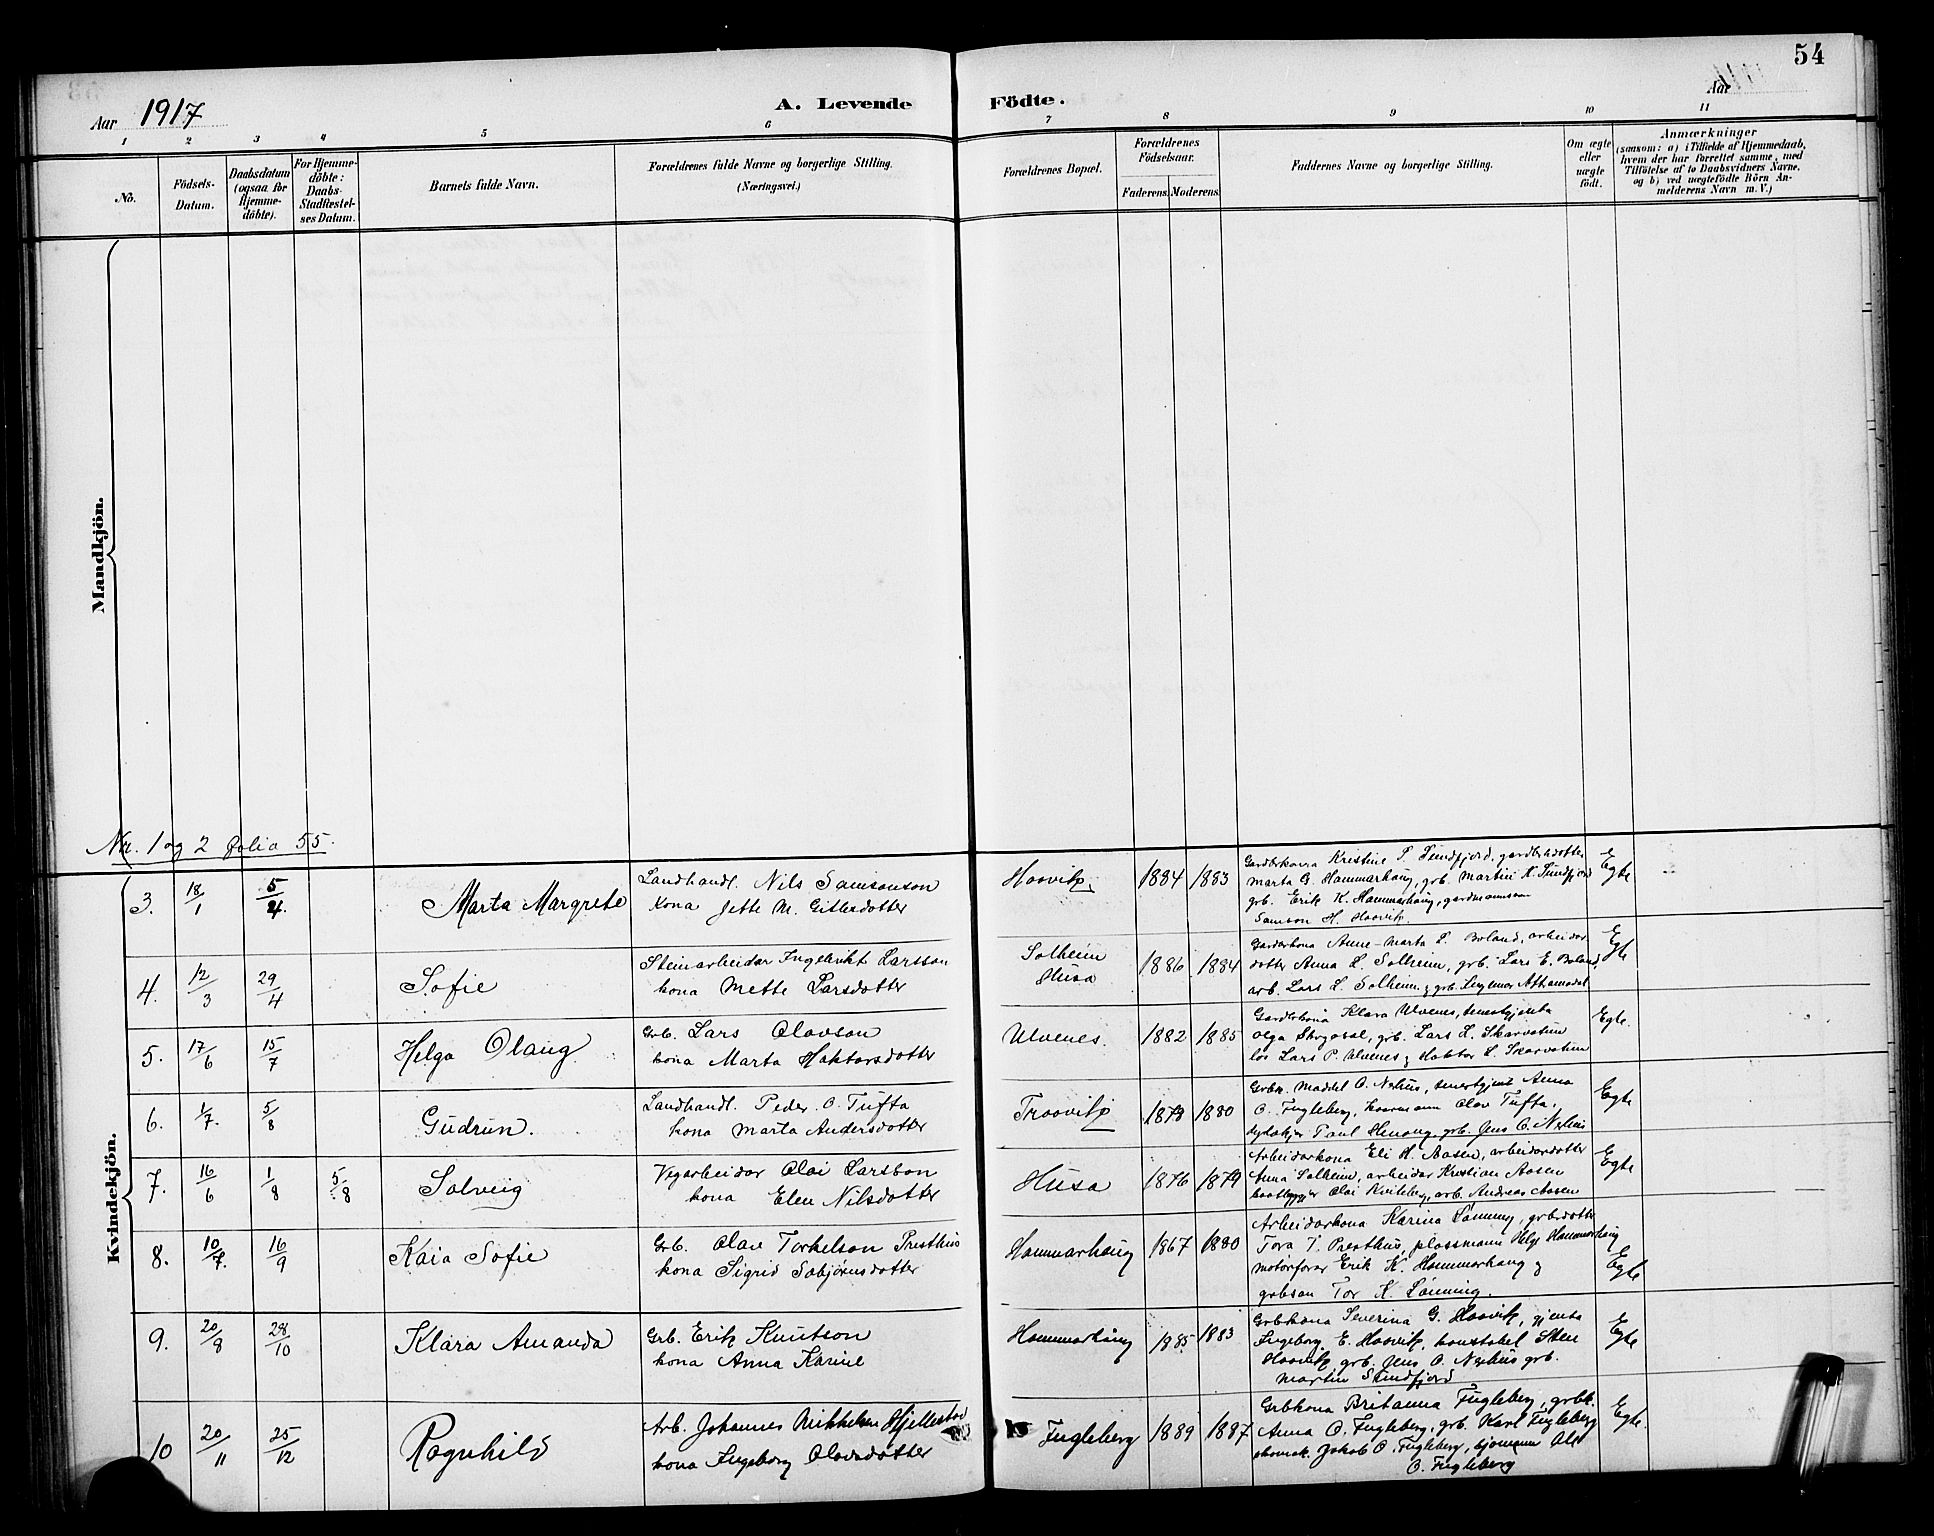 54
Aar 1917
A. Levende Födte.
Aar
1 2 3 4 5 6 7 8 9 10 11
No.
Födsels-Datum.
Daabsdatum (ogsaa for Hjemme-döbte).
For Hjemme-döbte: Daabs-Stadfæstel-ses Datum.
Barnets fulde Navn.
Forældrenes fulde Navne og borgerlige Stilling. (Næringsvei.)
Forældrenes Bopæl.
Forældrenes Födselsaar.
Faderens. Moderens.
Faddernes Navne og borgerlige Stilling.
Om ægte eller uægte födt.
Anmærkninger
(saasom: a) i Tilfælde af Hjemmedaab,
hvem der har forrettet samme, med
Tilföielse af to Daabsvidners Navne,
og b) ved uægtefödte Börn An-
melderens Navn m. V.)
Mandkjön.
Nr. 1 og 2 folio 55.
Kvindekjön.
3. 18/1 5/4. Marta Margrete
Landhandl. Nils Samsonson
Kona Jette M. Gitlesdotter
Hoovik. 1884 1883
Garderkona Kristine P. Sundfjord, garderdotter
Marta G. Hammarhaug, grb. Martin K. Sundfjord
grb. Erik K. Hammarhaug, gardmannsson
Samson H. Hoovik.
Egte
4. 12/3 29/4 Sofie
Steinarbeidar Ingebrikt Larsson
kona Mette Larsdotter
Solheim
Husa 1886 1884
Garderkona Anne-Marta L. Boland, arbeidar
dotter Anna L. Solheim, grb. Lars E. Boland,
arb. Lars L. Solheim, grb.
Egte
5. 17/6 15/7 Helga Olaug
Grb. Lars Olavson
kona Marta Haktorsdotter
Ulvenes. 1882 1885
Garderkona Klara Ulvenes, tenestgjenta
Olga, grb. Lars L. Skarvatun
Lars P. Ulvenes & Haktor L. Skarvatun
Egte.
6. 1/7. 5/8 Gudrun.
Landhandl. Peder O. Tufta
kona Marta Andersdotter
Troovik 1879 1880
Grbk. Maddel O. Neshus, tenestgjent Anna
O. Fugleberg, Olav Tufta,
Paul, grb. Jens O. Neshus
Egte
7. 16/6 1/8 5/8 Solveig
Vegarbeidar Olai Larsson
kona Elen Nilsdotter
Husa 1876 1879
Arbeidarkona Eli H. Aasen, arbeidardotter
Anna Solheim, arbeidar Kristian Aasen
baatbyggjer Olai Kviteberg, arb. Andreas Aasen
Egte
8. 10/7. 16/9 Kaia Sofie
Grb. Olav Torkelson Presthus
kona Sigrid Sabjørnsdotter
Hammarhaug 1867 1880
Arbeidarkona Karina Lønning, grbdotter
Tora T. Presthus, plassmann Helge Hammarhaug
motorførar Erik K. Hammarhaug &
grbson Tor K. Lønning.
Egte
9. 20/8 28/10 Klara Amanda
Grb. Erik Knutson
kona Anna Karine
Hammarhaug 1885 1883
Grbkona Severina G. Hoovik, gjenta
Ingeborg E. Hoovik, konstabel Sten
Hoovik, grb. Jens O. Neshus grb.
Martin Sundfjord
Egte
10 20/11 25/12 Ragnhild
Arb. Johannes Mikkelsen Hjellestad
kona Ingeborg Olavsdotter
Fugleberg 1889 1887
Grbkona Britanna Fugleberg, grbk.
Anna O. Fugleberg, grb. Karl Fugleberg
skomak. Jakob O. Fugleberg, Ola
O. Fugleberg
Egte.